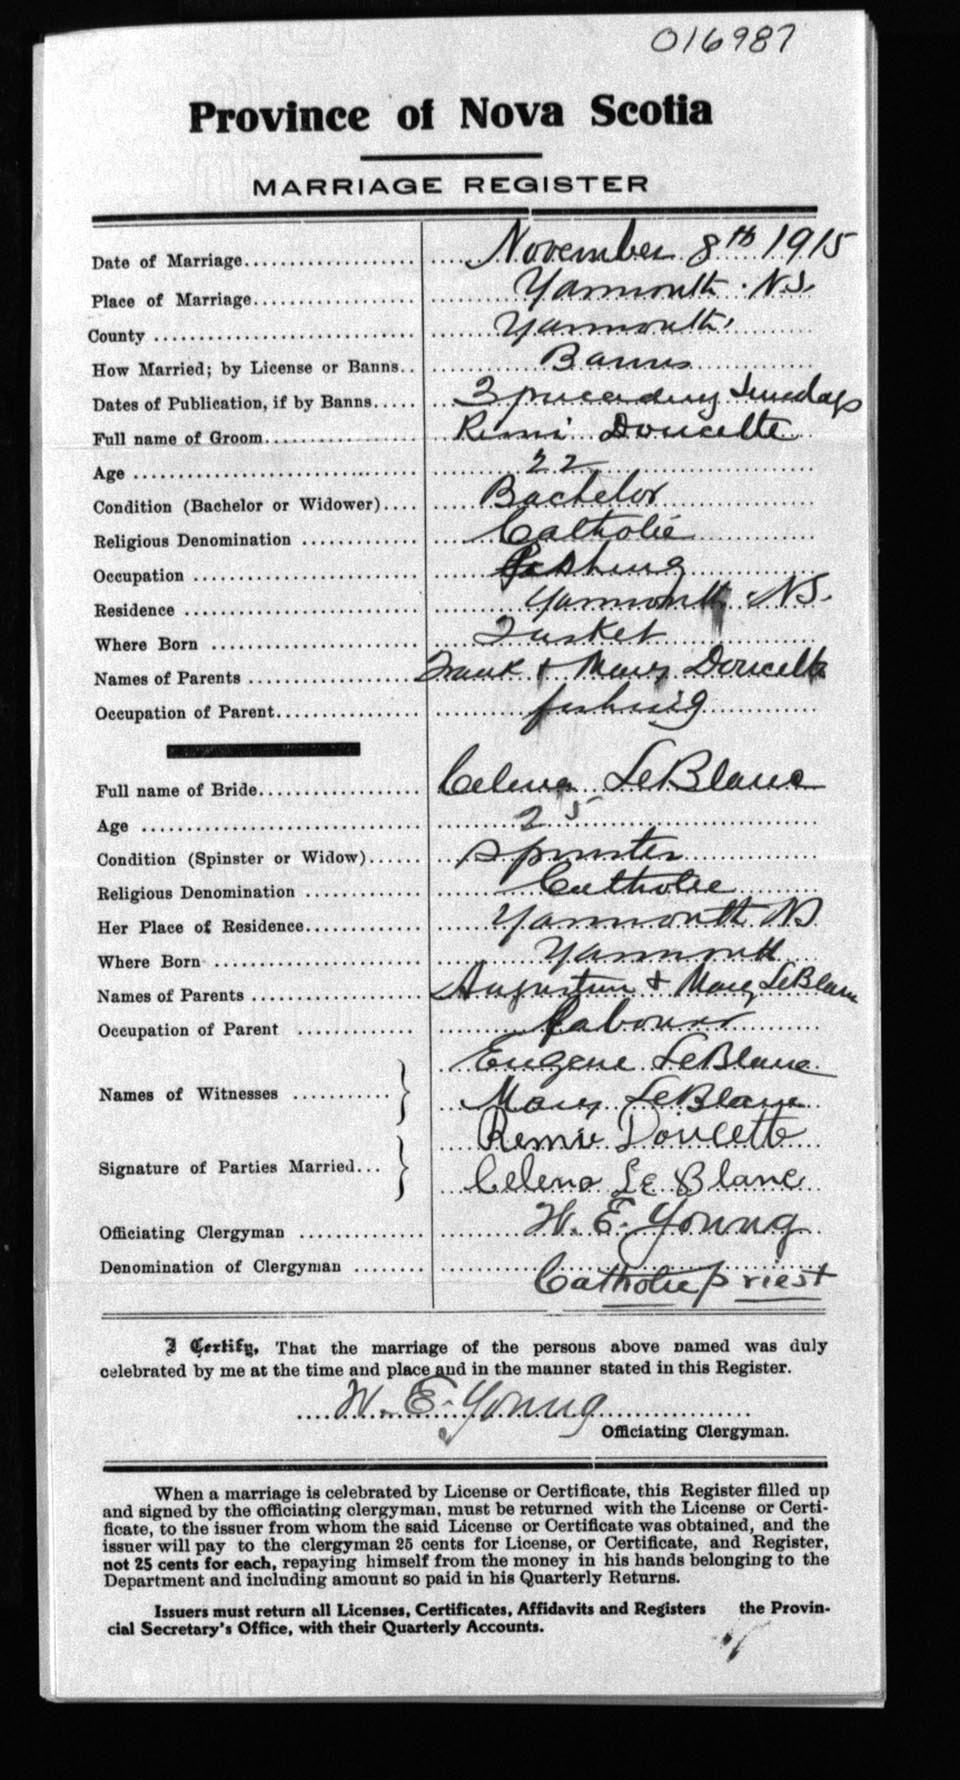 016987
Province of Nova Scotia
MARRIAGE REGISTER
Date of Marriage.................... November 8th 1915
Place of Marriage................... Yarmouth N.S.
County ............................. Yarmouth
How Married; by License or Banns.. Banns
Dates of Publication, if by Banns..... 3 preceding Sundays
Full name of Groom.................. Remi Doucette
Age ................................ 22
Condition (Bachelor or Widower).... Bachelor
Religious Denomination ............. Catholic
Occupation ......................... fishing
Residence .......................... Yarmouth N.S.
Where Born ......................... Tusket
Names of Parents ................... Frank & Mary Doucette
Occupation of Parent................ fishing
Full name of Bride.................. Celena LeBlanc
Age ................................ 25
Condition (Spinster or Widow)...... Spinster
Religious Denomination ............. Catholic
Her Place of Residence............. Yarmouth NS
Where Born ......................... Yarmouth
Names of Parents ................... Augustin & Mary LeBlanc
Occupation of Parent ............... labourer
Eugene LeBlanc
Names of Witnesses ........... }
Mary LeBlanc
Remie Doucette
Signature of Parties Married... }
Celena Le Blanc
Officiating Clergyman .............. W. E. Young
Denomination of Clergyman ........ Catholic priest
I Certify, That the marriage of the persons above named was duly
celebrated by me at the time and place and in the manner stated in this Register.
W. E. Young
Officiating Clergyman.
When a marriage is celebrated by License or Certificate, this Register filled up
and signed by the officiating clergyman, must be returned with the License or Certi-
ficate, to the issuer from whom the said License or Certificate was obtained, and the
issuer will pay to the clergyman 25 cents for License, or Certificate, and Register,
not 25 cents for each, repaying himself from the money in his hands belonging to the
Department and including amount so paid in his Quarterly Returns.
Issuers must return all Licenses, Certificates, Affidavits and Registers the Provin-
cial Secretary's Office, with their Quarterly Accounts.